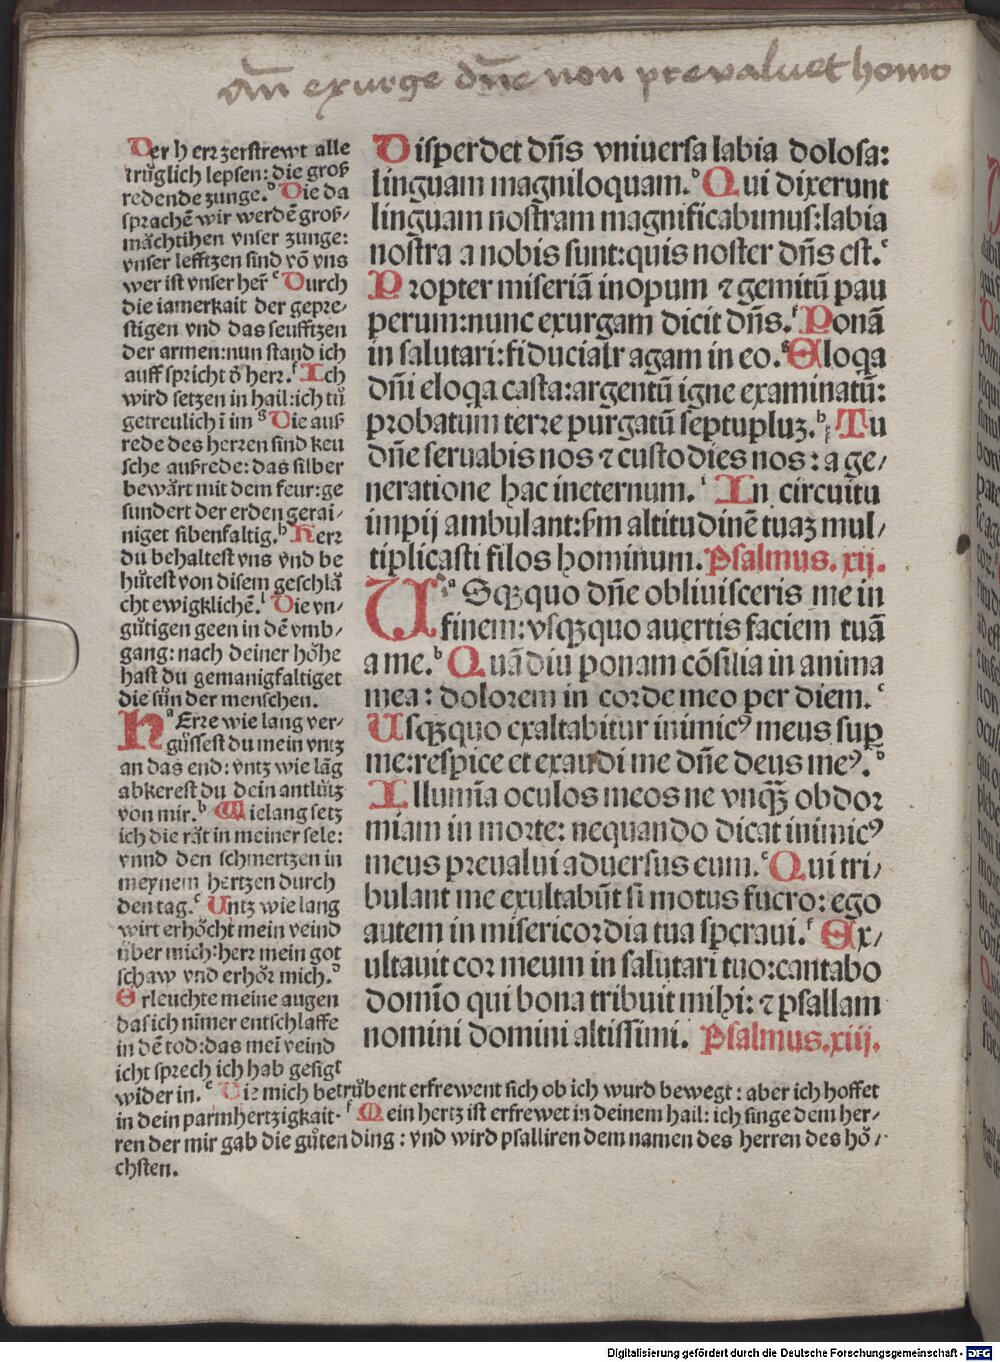 Añ exurge dñe non prevaluet homo
Der herr zerstrewt alle
trüglich lepsen: die groß
redende zunge.ᵇ Die da
sprachē wir werdē groß/
mächtihen vnser zunge:
vnser lefftzen sind vō vns
wer ist vnser her̃ ᶜ Durch
die iamerkait der gepre/
stigen vnd das seufftzen
der armen: nun stand ich
auff spricht ð herr.ᶠ Ich
wird setzen in hail: ich tů
getreulich ī im ᵍ Die auß
rede des herren sind keu
sche außrede: das silber
bewärt mit dem feur: ge
sundert der erden gerai/
niget sibenfaltig.ʰ Herr
du behaltest vns vnd be
hütest von disem geschlä
cht ewigklichē.ⁱ Die vn/
gütigen geen in dē vmb/
gang: nach deiner höhe
hast du gemanigfaltiget
die sün der menschen.
Hᵃ Erre wie lang ver/
güssest du mein vntz
an das end: vntz wie lāg
abkerest du dein antlütz
von mir.ᵇ Wielang setz
ich die rät in meiner sele:
vnnd den schmertzen in
meynem hertzen durch
den tag.ᶜ Untz wie lang
wirt erhöcht mein veind
über mich: herr mein got
schaw vnd erhör mich.ᵈ
Erleuchte meine augen
das ich nīmer entschlaffe
in dē tod: das mei veind
icht sprech ich hab gesigt
wider in.ᵉ Die mich betrůbent erfrewent sich ob ich wurd bewegt: aber ich hoffet
in dein parmhertzigkait.ᶠ Mein hertz ist erfrewet in deinem hail: ich singe dem her/
ren der mir gab die gůten ding: vnd wird psalliren dem namen des herren des hö/
chsten.
Disperdet dñs vniuersa labia dolosa:
linguam magniloquam.ᵇ Qui dixerunt
linguam nostram magnificabimus: labia
nostra a nobis sunt: quis noster dñs est.ᶜ
Propter miseriā inopum ⁊ gemitū pau
perum: nunc exurgam dicit dñs.ᶠ Ponā
in salutari: fiducialr agam in eo.ᵍ Eloqa
dñi eloqa casta: argentū igne examinatū:
probatum terre purgatū septupluz.ʰ Tu
dñe seruabis nos ⁊ custodies nos: a ge/
neratione hac ineternum.ⁱ In circuitu
impij ambulant: fm altitudinē tuaz mul/
tiplicasti filos hominum. Psalmus. xij.
Uᵃ Sqzquo dñe obliuisceris me in
finem: vsqzquo auertis faciem tuā
a me.ᵇ Quā diu ponam cōsilia in anima
mea: dolorem in corde meo per diem.ᶜ
Usqzquo exaltabitur inimicꝰ meus sup
me: respice et exaudi me dñe deus meꝰ.ᵈ
Illumīa oculos meos ne vnqz̄ obdor
miam in morte: nequando dicat inimicꝰ
meus preualui aduersus eum.ᵉ Qui tri/
bulant me exultabūt si motus fuero: ego
autem in misericordia tua speraui.ᶠ Ex/
ultauit cor meum in salutari tuo: cantabo
domīo qui bona tribuit mihi: ⁊ psallam
nomini domini altissimi. Psalmus. xiij.
Digitalisierung gefördert durch die Deutsche Forschungsgemeinschaft - DFG